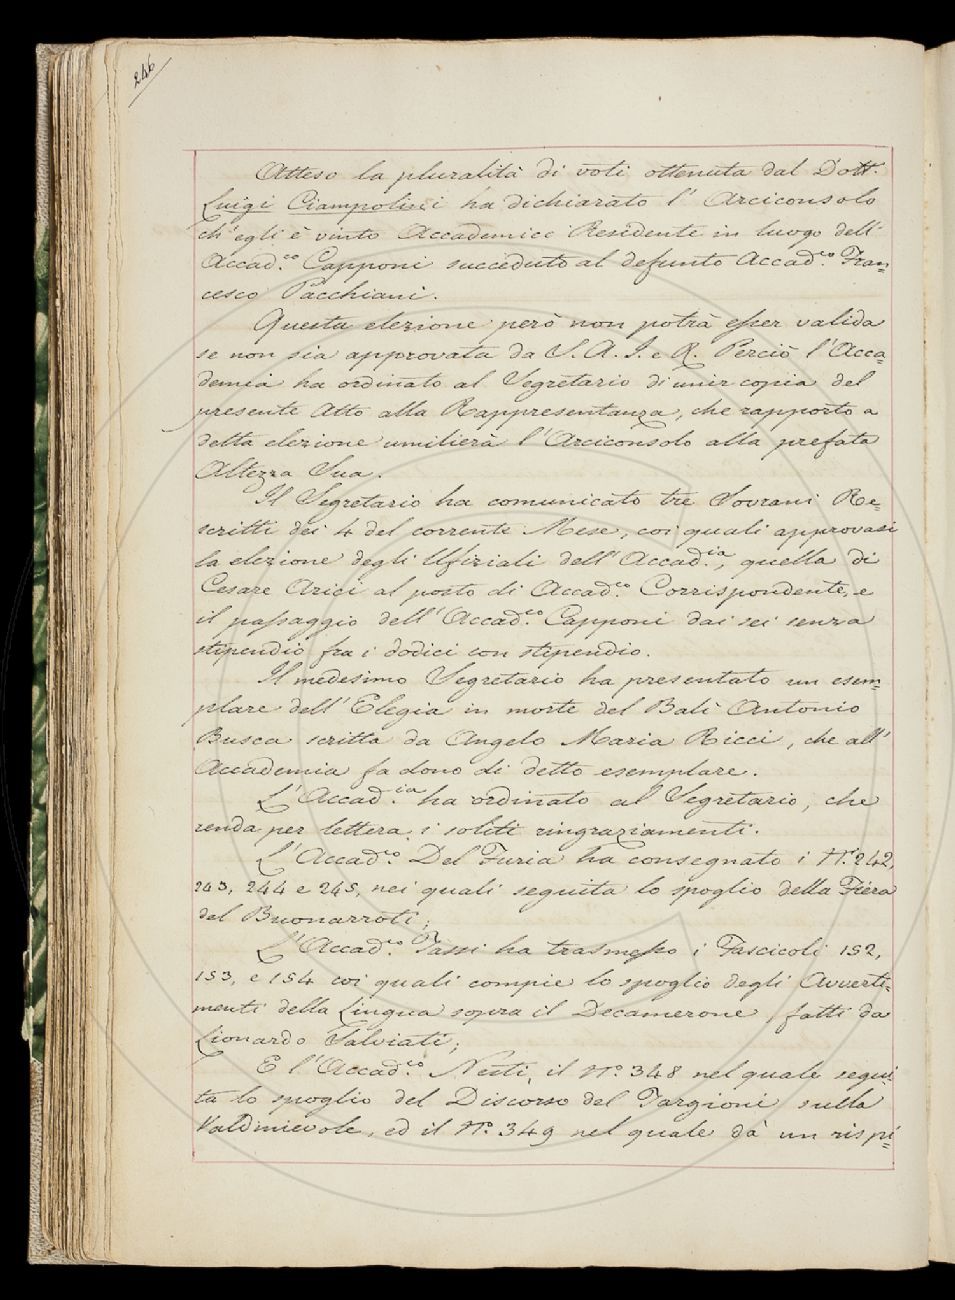 246
Atteso la pluralità di voti ottenuta dal Dott.
Luigi Ciampolini ha dichiarato l'Arciconsolo
ch'egli è vinto Accademico Residente in luogo dell'
Accad.co Capponi succeduto al defunto Accad.co Fran=
cesco Pacchiani.
Questa elezione però non potrà esser valida
se non sia approvata da S. A. I. e R. Perciò l'Acca=
demia ha ordinato al Segretario di unir copia del
presente Atto alla Rappresentanza, che rapporto a
detta elezione umilierà l'Arciconsolo alla prefata
Altezza Sua.
Il Segretario ha comunicato tre Sovrani Re=
scritti dei 4 del corrente Mese, coi quali approvasi
la elezione degli Ufiziali dell'Accad.ia, quella di
Cesare Arici al posto di Accad.co Corrispondente, e
il passaggio dell'Accad.co Capponi dai sei senza
stipendio fra i dodici con stipendio.
Il medesimo Segretario ha presentato un esem=
plare dell'Elegia in morte del Balì Antonio
Busca scritta da Angelo Maria Ricci, che all'
Accademia fa dono di detto esemplare.
L'Accad.ia ha ordinato al Segretario, che
renda per lettera i soliti ringraziamenti.
L'Accad.co Del Furia ha consegnato i N.i 242,
243, 244 e 245, nei quali seguita lo spoglio della Fiera
del Buonarroti;
L'Accad.co Tassi ha trasmesso i Fascicoli 152,
153, e 154 coi quali compie lo spoglio degli Avverti=
menti della Lingua sopra il Decamerone, fatti da
Lionardo Salviati;
E l'Accad.co Nesti, il N.o 348 nel quale segui=
ta lo spoglio del Discorso del Targioni sulla
Valdinievole, ed il N.o 349 nel quale dà un rispi=